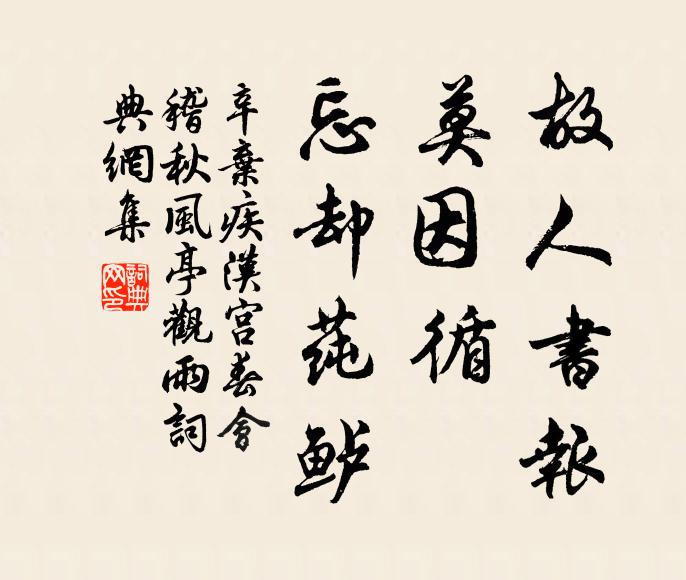 故人書報
莫因循
忘却蒓鲈
辛棄疾漢宮春會
稽秋風亭觀雨詞
典網集
詞典
网印